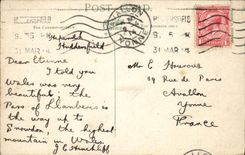 POST CARD
HUDDERSFIELD
9. 15 PM
31 MAR 14
Huddersfield
Dear Etienne
I told you
Wales was very
beautiful; the
Pass of Llanberis
is the way up
to Snowdon, the highest
mountain in Wales
Mr E
29 Rue de Paris
Avallon
Yonne
France